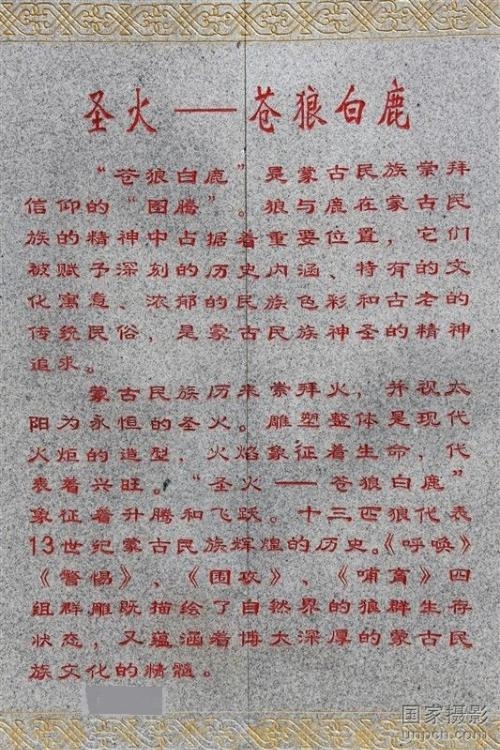 圣火——苍狼白鹿
“苍狼白鹿”是蒙古民族崇拜
信仰的“图腾”。狼与鹿在蒙古民
族的精神中占据着重要位置，它们
被赋予深刻的历史内涵、特有的文
化寓意、浓郁的民族色彩和古老的
传统民俗，是蒙古民族神圣的精神
追求。
蒙古民族历来崇拜火，并视太
阳为永恒的圣火。雕塑整体是现代
火炬的造型，火焰象征着生命，代
表着兴旺。“圣火——苍狼白鹿”
象征着升腾和飞跃。十三匹狼代表
13世纪蒙古民族辉煌的历史。《呼唤》
《警惕》、《围攻》、《哺育》四
组群雕既描绘了自然界的狼群生存
状态，又蕴涵着博大深厚的蒙古民
族文化的精髓。
国家摄影
unpcn.com